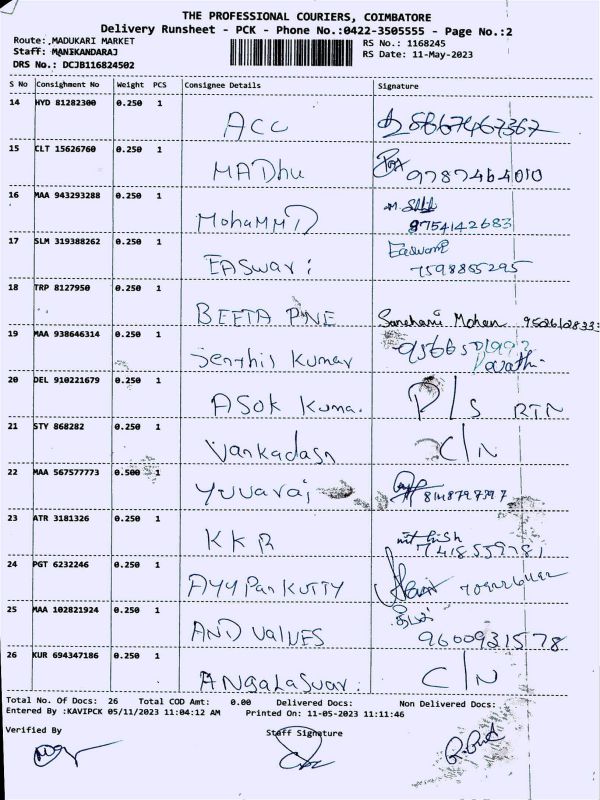 THE PROFESSIONAL COURIERS, COIMBATORE
Delivery Runsheet - PCK - Phone No.:0422-3505555 - Page No.:2
Route: MADUKARI MARKET
RS No.: 1168245
Staff: MANIKANDARAJ
RS Date: 11-May-2023
DRS No.: DCJB116824502
S No Consignment No Weight PCS Consignee Details Signature
14 HYD 81282300 0.250 1 ACC 8867467367
15 CLT 15626760 0.250 1 MADhu 9787464010
16 MAA 943293288 0.250 1 MohaMMD 8754142683
17 SLM 319388262 0.250 1 EASwari Easwari 7598855295
18 TRP 8127950 0.250 1 BEETA PINE Mohan
19 MAA 938646314 0.250 1 Senthil Kumar
20 DEL 910221679 0.250 1 ASok Kuma. D/S RTN
21 STY 868282 0.250 1 Vankadasn C/N
22 MAA 567577773 0.500 1 Yuvaraj
23 ATR 3181326 0.250 1 KKR
24 PGT 6232246 0.250 1 AYYPan KUTTY
25 MAA 102821924 0.250 1 AND VALUES 9600931578
26 KUR 694347186 0.250 1 ANgalaswar. C/N
Total No. Of Docs: 26 Total COD Amt: 0.00 Delivered Docs: Non Delivered Docs:
Entered By :KAVIPCK 05/11/2023 11:04:12 AM Printed On: 11-05-2023 11:11:46
Verified By
Staff Signature